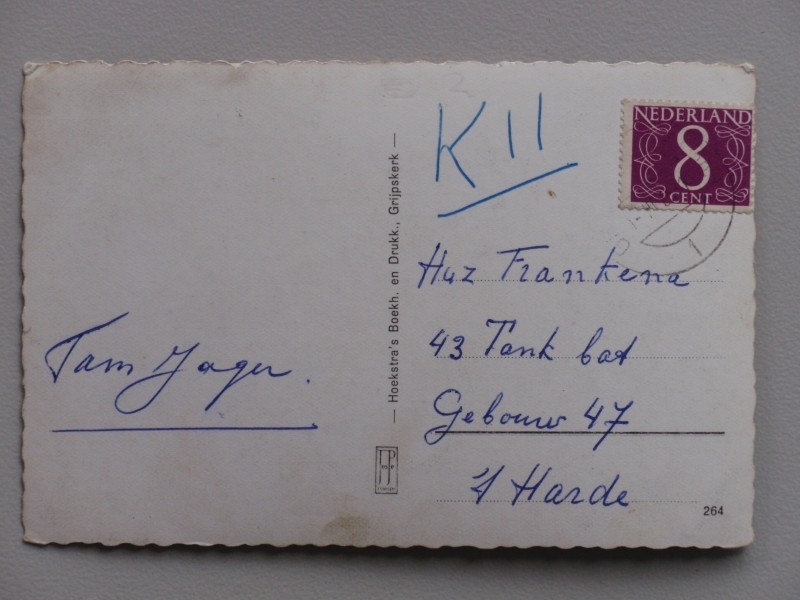 K 11
NEDERLAND
8
CENT
1
Fam Jager.
— Hoekstra's Boekh. en Drukk., Grijpskerk —
Huz Frankena
43 Tank bat
Gebouw 47
't Harde
264